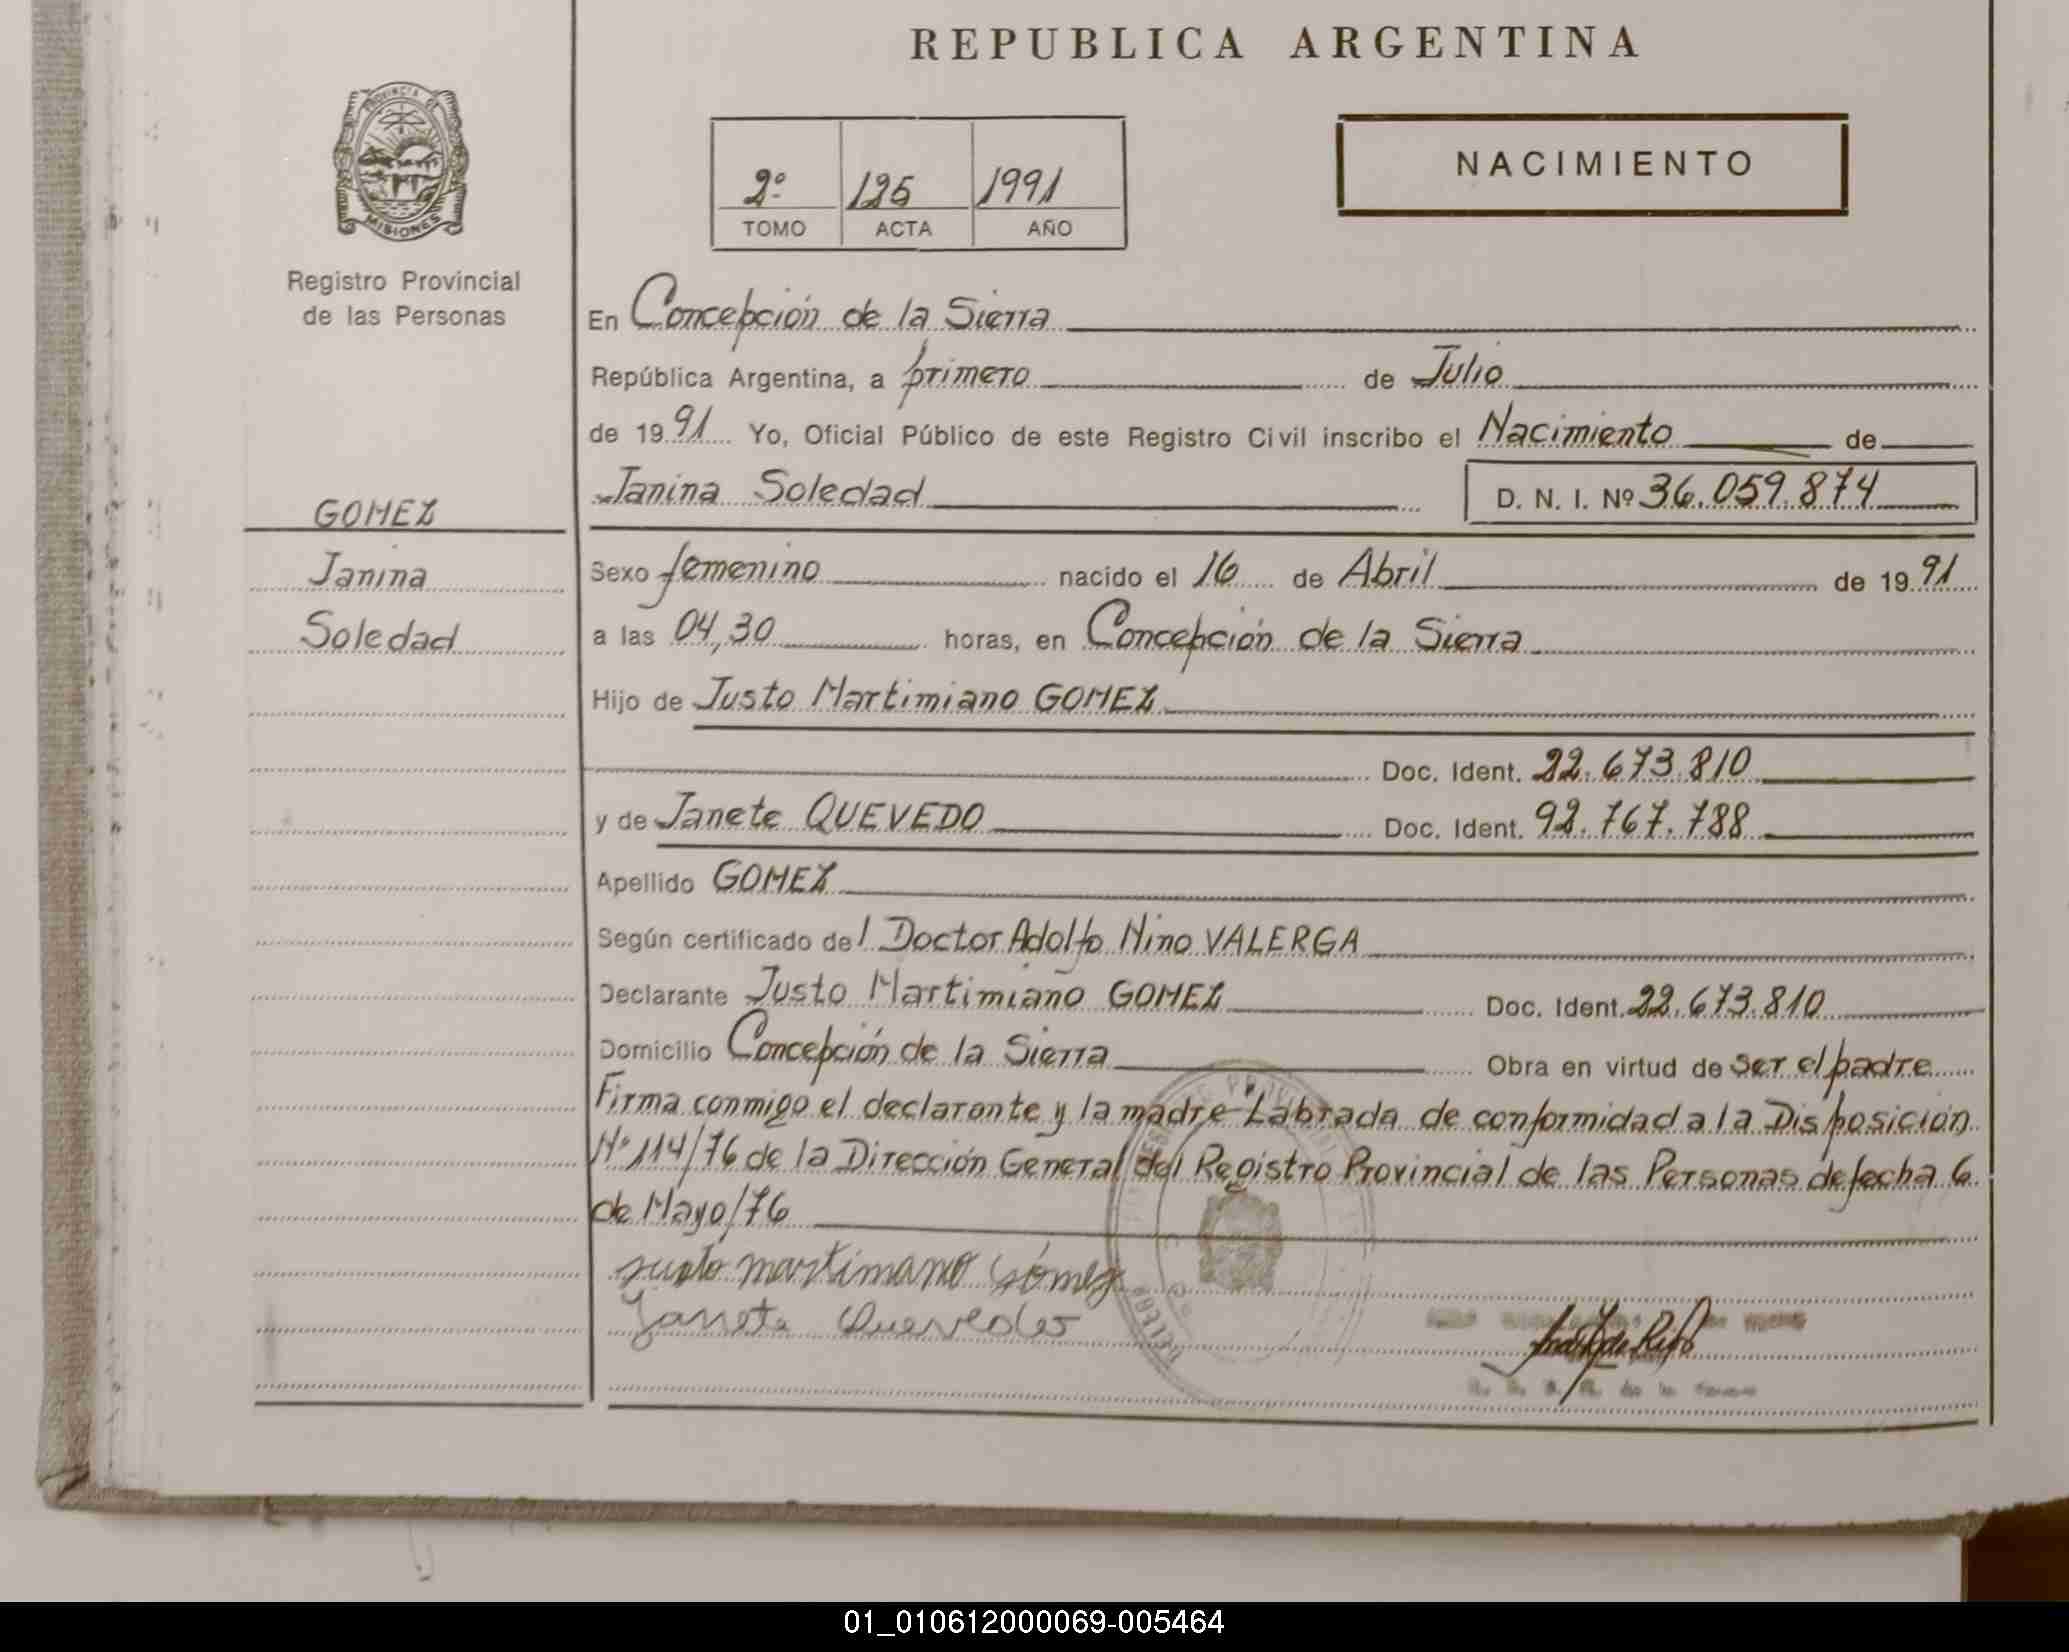 REPUBLICA ARGENTINA
PROVINCIA DE
MISIONES
Registro Provincial
de las Personas
2º 125 1991
TOMO ACTA AÑO
NACIMIENTO
En Concepción de la Sierra
República Argentina, a primero de Julio
de 1991 Yo, Oficial Público de este Registro Civil inscribo el Nacimiento de
Janina Soledad D. N. I. Nº 36.059.874
GOMEZ
Janina
Soledad
Sexo femenino nacido el 16 de Abril de 1991
a las 04,30 horas, en Concepción de la Sierra
Hijo de Justo Martimiano GOMEZ
Doc. Ident. 22.673.810
y de Janete QUEVEDO Doc. Ident. 92.767.788
Apellido GOMEZ
Según certificado del Doctor Adolfo Nino VALERGA
Declarante Justo Martimiano GOMEZ Doc. Ident. 22.673.810
Domicilio Concepción de la Sierra Obra en virtud de ser el padre
Firma conmigo el declarante y la madre-Labrada de conformidad a la Disposición
Nº 114/76 de la Dirección General del Registro Provincial de las Personas de fecha 6
de Mayo/76
justo martimano Gómez
Janete
01_010612000069-005464